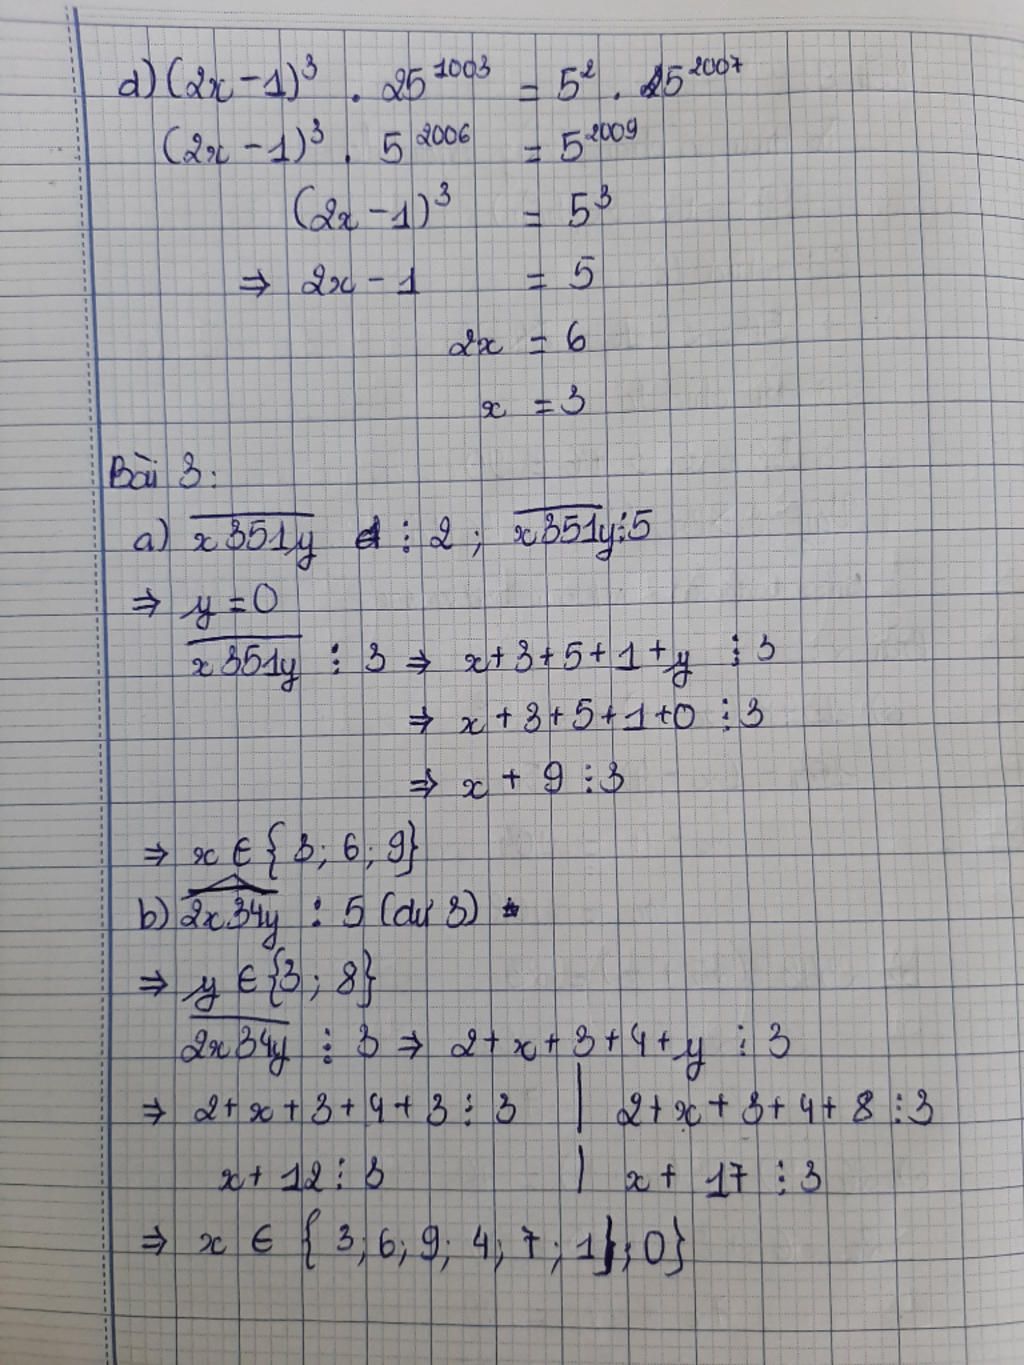 d) (2x - 1)³ . 25¹⁰⁰³ = 5² . 5²⁰⁰⁷
(2x - 1)³ . 5²⁰⁰⁶ = 5²⁰⁰⁹
(2x - 1)³ = 5³
⇒ 2x - 1 = 5
2x = 6
x = 3
Bài 3:
a) x351y ⋮ 2 ; x351y ⋮ 5
⇒ y = 0
x351y ⋮ 3 ⇒ x + 3 + 5 + 1 + y ⋮ 3
⇒ x + 3 + 5 + 1 + 0 ⋮ 3
⇒ x + 9 ⋮ 3
⇒ x ∈ {3; 6; 9}
b) 2x34y : 5 (dư 3)
⇒ y ∈ {3 ; 8}
2x34y ⋮ 3 ⇒ 2 + x + 3 + 4 + y ⋮ 3
⇒ 2 + x + 3 + 4 + 3 ⋮ 3 | 2 + x + 3 + 4 + 8 ⋮ 3
x + 12 ⋮ 3 | x + 17 ⋮ 3
⇒ x ∈ { 3; 6; 9; 4; 7; 1; 0}